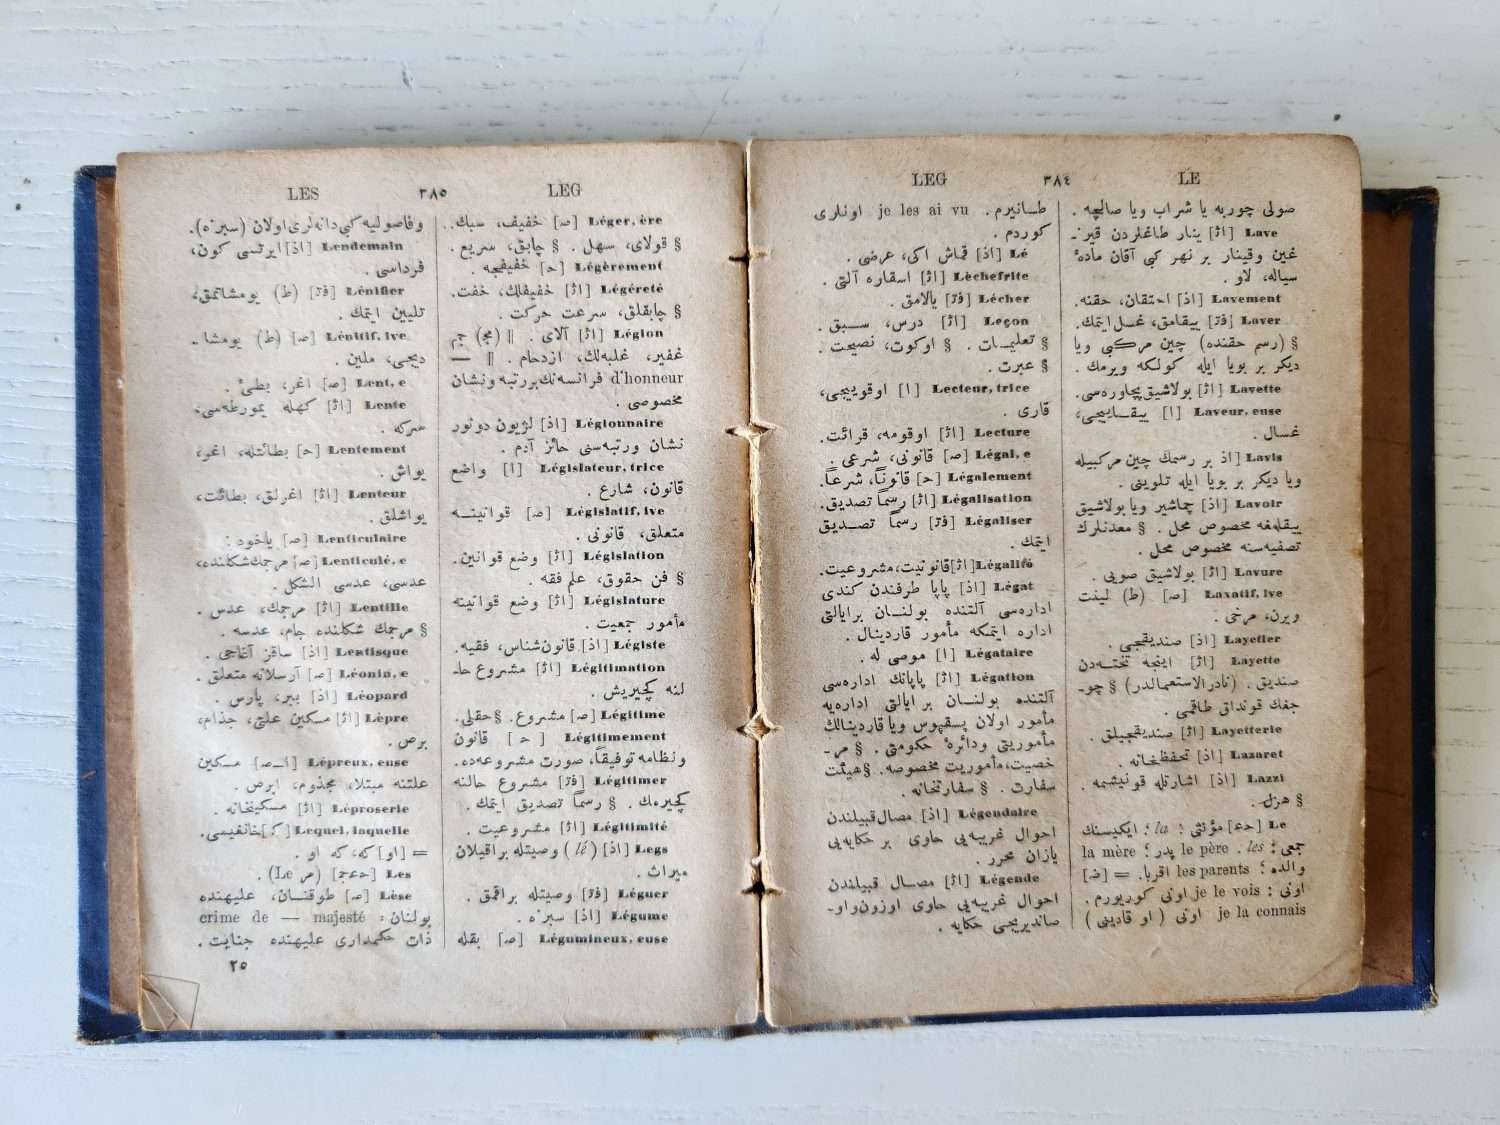 LE ٣٨٤ LEG
صولی چوربه یا شراب ویا صالچه .
Lave [اث] ینار طاغلردن قیز-
غین وقینار بر نهر کبی آقان مادهٔ
سیاله، لاو .
Lavement [اذ] احتقان، حقنه.
Laver [فت] ییقامق، غسل ایتمك.
§ (رسم حقنده) چین مرکبی ویا
دیکر بر بویا ایله کولکه ویرمك .
Lavette [اث] بولاشیق پچاوره‌سی.
Laveur, euse [ا] ییقاییجی،
غسال .
Lavis [اذ بر رسمك چین مرکبیله
ویا دیکر بر بویا ایله تلوینی .
Lavoir [اذ] چماشیر ویا بولاشیق
ییقامغه مخصوص محل . § معدنلرك
تصفیه‌سنه مخصوص محل .
Lavure [اث] بولاشیق صویی .
Laxatif, ive [ص] (ط) لینت
ویرن، مرخی .
Layetier [اذ] صندیقجی .
Layette [اث] اینجه تخته‌دن
صندیق . (نادرالاستعمالدر) § چو-
جغك قونداق طاقمی .
Layetterie [اث] صندیقجیلق .
Lazaret [اذ] تحفظخانه .
Lazzi [اذ] اشارتله قونیشمه .
§ هزل .
Le [حع] مؤنثی : la ؛ ایکیسنك
جمعی : les . le père پدر ؛ la mère
والده ؛ les parents اقربا. = [ض]
اونی : je le vois اونی کوریورم .
je la connais اونی ( او قادینی )
طانیرم . je les ai vu اونلری
کوردم .
Lé [اذ] قماش اکی، عرضی .
Lèchefrite [اث] اسقاره آلتی .
Lécher [فت] یالامق .
Leçon [اث] درس، سبق .
§ تعلیمات . § اوکوت، نصیحت .
§ عبرت .
Lecteur, trice [ا] اوقوییجی،
قاری .
Lecture [اث] اوقومه، قرائت.
Légal, e [ص] قانونی، شرعی .
Légalement [ح] قانوناً، شرعاً.
Légalisation [اث] رسماً تصدیق.
Légaliser [فت] رسماً تصدیق
ایتمك .
Légalité [اث] قانونیت، مشروعیت.
Légat [اذ] پاپا طرفندن کندی
اداره‌سی آلتنده بولنان برایالتی
اداره ایتمکه مأمور قاردینال .
Légataire [ا] موصی له .
Légation [اث] پاپانك اداره‌سی
آلتنده بولنان بر ایالتی اداره‌یه
مأمور اولان پسقپوس ویا قاردینالك
مأموریتی ودائرهٔ حکومتی . § مر-
خصیت، مأموریت مخصوصه. § هیئت
سفارت . § سفارتخانه .
Légendaire [اذ] مصال قبیلندن
احوال غریبه‌یی حاوی بر حکایه‌یی
یازان محرر .
Légende [اث] مصال قبیلندن
احوال غریبه‌یی حاوی اوزون واو-
صاندیریجی حکایه .
LEG ٣٨٥ LES
Léger, ère [ص] خفیف، سبك .
§ قولای، سهل . § چابق، سریع .
Légèrement [ح] خفیفجه .
Légéreté [اث] خفیفلك، خفت.
§ چابقلق، سرعت حرکت .
Légion [اث] آلای . ‖ (مج) جم
غفیر، غلبه‌لك، ازدحام . ‖ —
d'honneur فرانسه‌نك بر رتبه ونشان
مخصوصی .
Légionnaire [اذ] لژیون دونور
نشان ورتبه‌سنی حائز آدم .
Législateur, trice [ا] واضع
قانون، شارع .
Législatif, ive [ص] قوانینه
متعلق، قانونی .
Législation [اث] وضع قوانین.
§ فن حقوق، علم فقه .
Législature [اث] وضع قوانینه
مأمور جمعیت .
Légiste [اذ] قانون‌شناس، فقیه.
Légitimation [اث] مشروع حا-
لنه کچیریش .
Légitime [ص] مشروع. § حقلی.
Légitimement [ح] قانون
ونظامه توفیقاً، صورت مشروعه‌ده.
Légitimer [فت] مشروع حالنه
کچیرمك . § رسماً تصدیق ایتمك .
Légitimité [اث] مشروعیت .
Legs [اذ] (lé) وصیتله براقیلان
میراث .
Léguer [فت] وصیتله براقمق .
Légume [اذ] سبزه .
Légumineux, euse [ص] بقله
وفاصولیه کبی دانه‌لری اولان (سبزه).
Lendemain [اذ] ایرتسی کون،
فرداسی .
Lénifier [فت] (ط) یومشاتمق،
تلیین ایتمك .
Lénitif, ive [ص] (ط) یومشا-
دیجی، ملین .
Lent, e [ص] اغر، بطیٔ .
Lente [اث] کهله یمورطه‌سی،
سرکه .
Lentement [ح] بطائتله، اغر،
یواش .
Lenteur [اث] اغرلق، بطائت،
یواشلق .
Lenticulaire [ص] یاخود :
Lenticulé, e [ص] مرجمك شکلنده،
عدسی، عدسی الشکل .
Lentille [اث] مرجمك، عدس .
§ مرجمك شکلنده جام، عدسه .
Lentisque [اذ] ساقز آغاجی .
Léonin, e [ص] آرسلانه متعلق .
Léopard [اذ] ببر، پارس .
Lèpre [اث] مسکین علتی، جذام،
برص .
Lépreux, euse [ا-ص] مسکین
علتنه مبتلا، مجذوم، ابرص .
Léproserie [اث] مسکینخانه .
Lequel, laquelle [ك] خانغیسی.
= [او] که، که او .
Les [حعج] (مر Le) .
Lèse [ص] طوقنان، علیهنده
بولنان : crime de — majesté
ذات حکمداری علیهنده جنایت .
٢٥